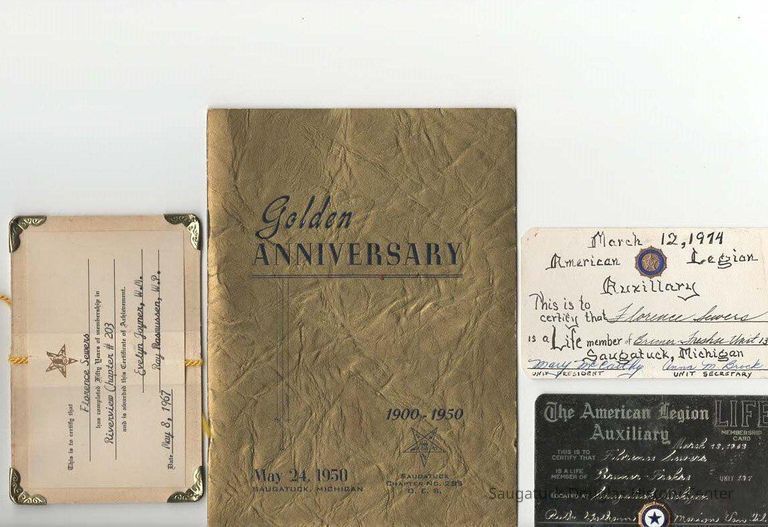 This is to certify that
Florence Sewers
has completed Fifty Years of membership in
Riverview Chapter # 203
and is awarded this Certificate of Achievement.
Evelyn Joyner, W.M.
Ray Rasmussen, W.P.
Date May 8, 1967
Golden
ANNIVERSARY
1900-1950
May 24, 1950
SAUGATUCK, MICHIGAN
SAUGATUCK
CHAPTER NO. 285
O. E. S.
March 12, 1974
American Legion
Auxillary
This is to
certify that Florence Sewers
is a Life member of Bruner Unit 13
Saugatuck, Michigan
Mary McCarthy Anna M. Brock
UNIT PRESIDENT UNIT SECRETARY
The American Legion LIFE
Auxiliary MEMBERSHIP
CARD
THIS IS TO
CERTIFY THAT Florence Sewers
IS A LIFE
MEMBER OF UNIT 137
LOCATED AT
Saugatuck